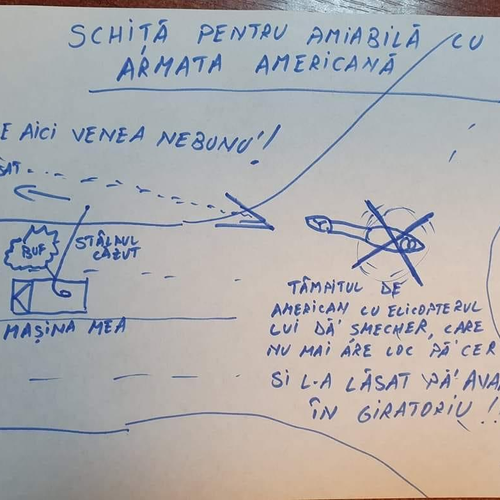 SCHIȚĂ PENTRU AMIABILĂ CU
ARMATA AMERICANĂ
E AICI VENEA NEBUNU'!
BUF
STÂLPUL
CĂZUT
MAȘINA MEA
TÂMPITUL DE
AMERICAN CU ELICOPTERUL
LUI DĂ' SMECHER, CARE
NU MAI ARE LOC PĂ' CER
SI L-A LĂSAT PĂ' AVA
ÎN GIRATORIU!!